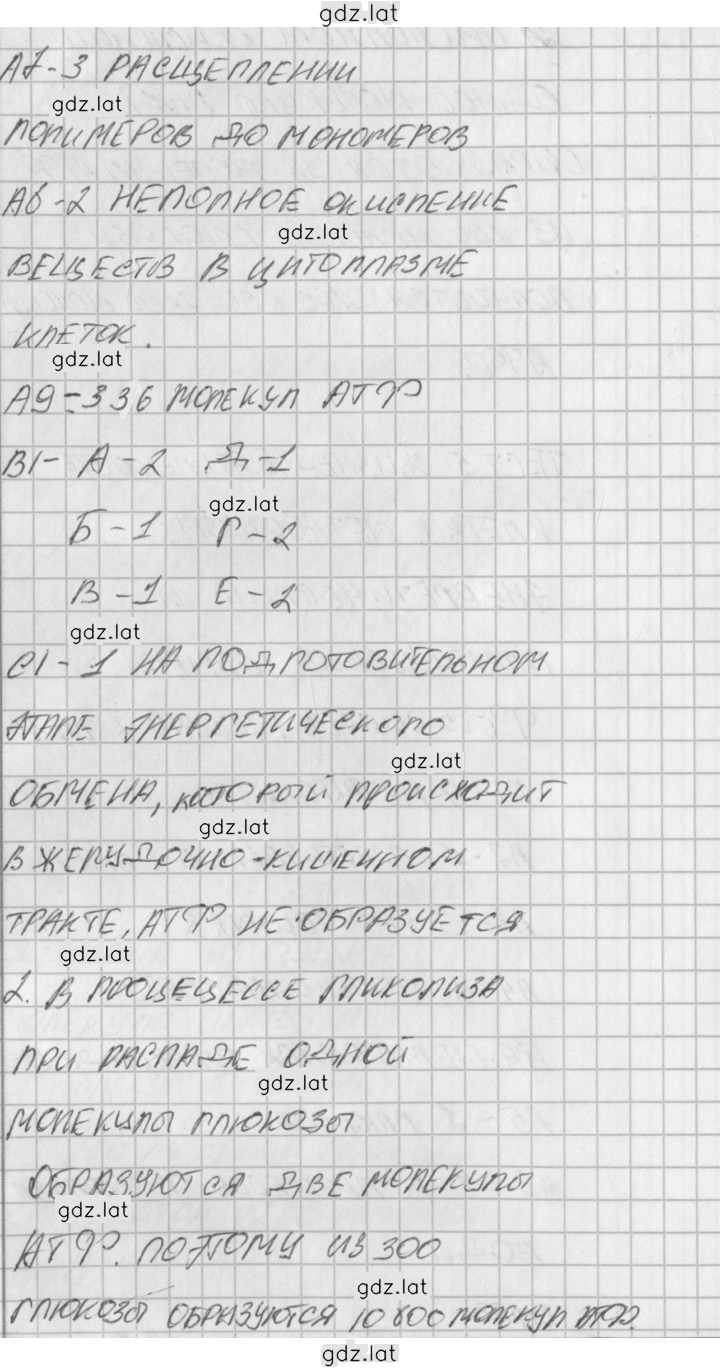 gdz.lat
А7-3 РАСЩЕПЛЕНИИ
gdz.lat
ПОЛИМЕРОВ ДО МОНОМЕРОВ
А8-2 НЕПОЛНОЕ ОКИСЛЕНИЕ
gdz.lat
ВЕЩЕСТВ В ЦИТОПЛАЗМЕ
КЛЕТОК.
gdz.lat
А9-336 МОЛЕКУЛ АТФ
В1- А-2 Д-1
gdz.lat
Б-1 Г-2
В-1 Е-2
gdz.lat
С1-1 НА ПОДГОТОВИТЕЛЬНОМ
ЭТАПЕ ЭНЕРГЕТИЧЕСКОГО
gdz.lat
ОБМЕНА, КОТОРЫЙ ПРОИСХОДИТ
gdz.lat
В ЖЕЛУДОЧНО-КИШЕЧНОМ
ТРАКТЕ, АТФ НЕ ОБРАЗУЕТСЯ
gdz.lat
2. В ПРОЦЕЦЕССЕ ГЛИКОЛИЗА
ПРИ РАСПАДЕ ОДНОЙ
gdz.lat
МОЛЕКУЛЫ ГЛЮКОЗЫ
ОБРАЗУЮТСЯ ДВЕ МОЛЕКУЛЫ
gdz.lat
АТФ. ПОЭТОМУ ИЗ 300
gdz.lat
ГЛЮКОЗЫ ОБРАЗУЮТСЯ 10 800 МОЛЕКУЛ АТФ.
gdz.lat